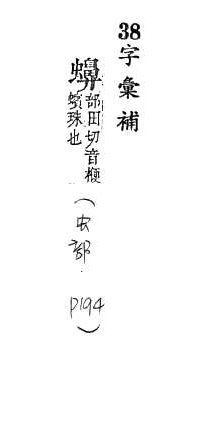 38字彙補
部田切音楩
蠙珠也
(虫部 P194)